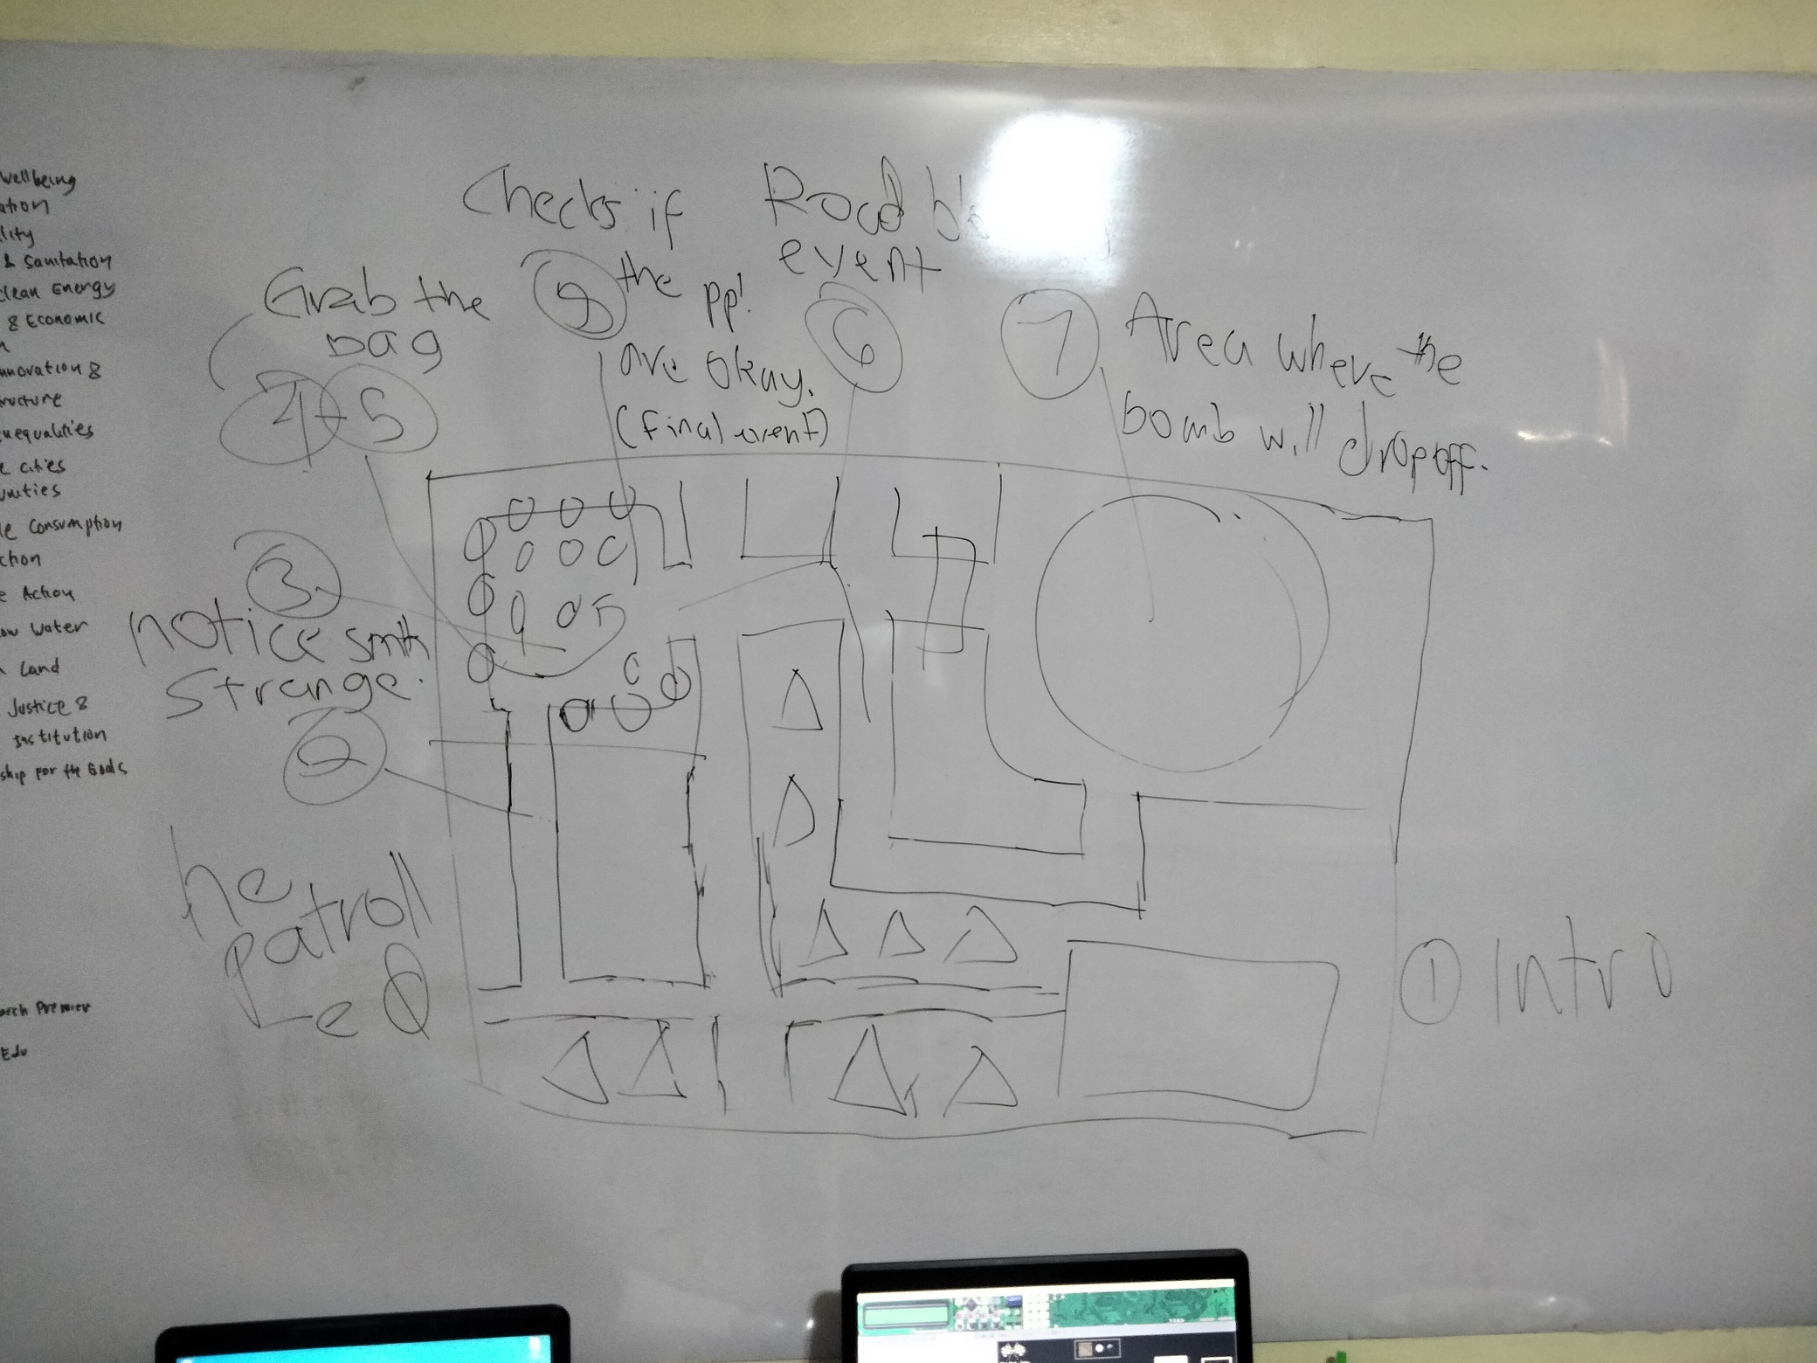 wellbeing
ation
lity
& Sanitation
clean Energy
& Economic
nnovation &
ructure
nequalities
e cities
unities
le Consumption
ction
e Action
ow Water
n Land
Justice &
Institution
ship for the Goals
arch Premier
Edu
Checks if
the pp!
are okay.
(final event)
9
Road
event
6
Grab the
bag
4+5
7
Area where the
bomb will dropoff.
3
notice smth
strange.
2
he
patroll
1 Intro